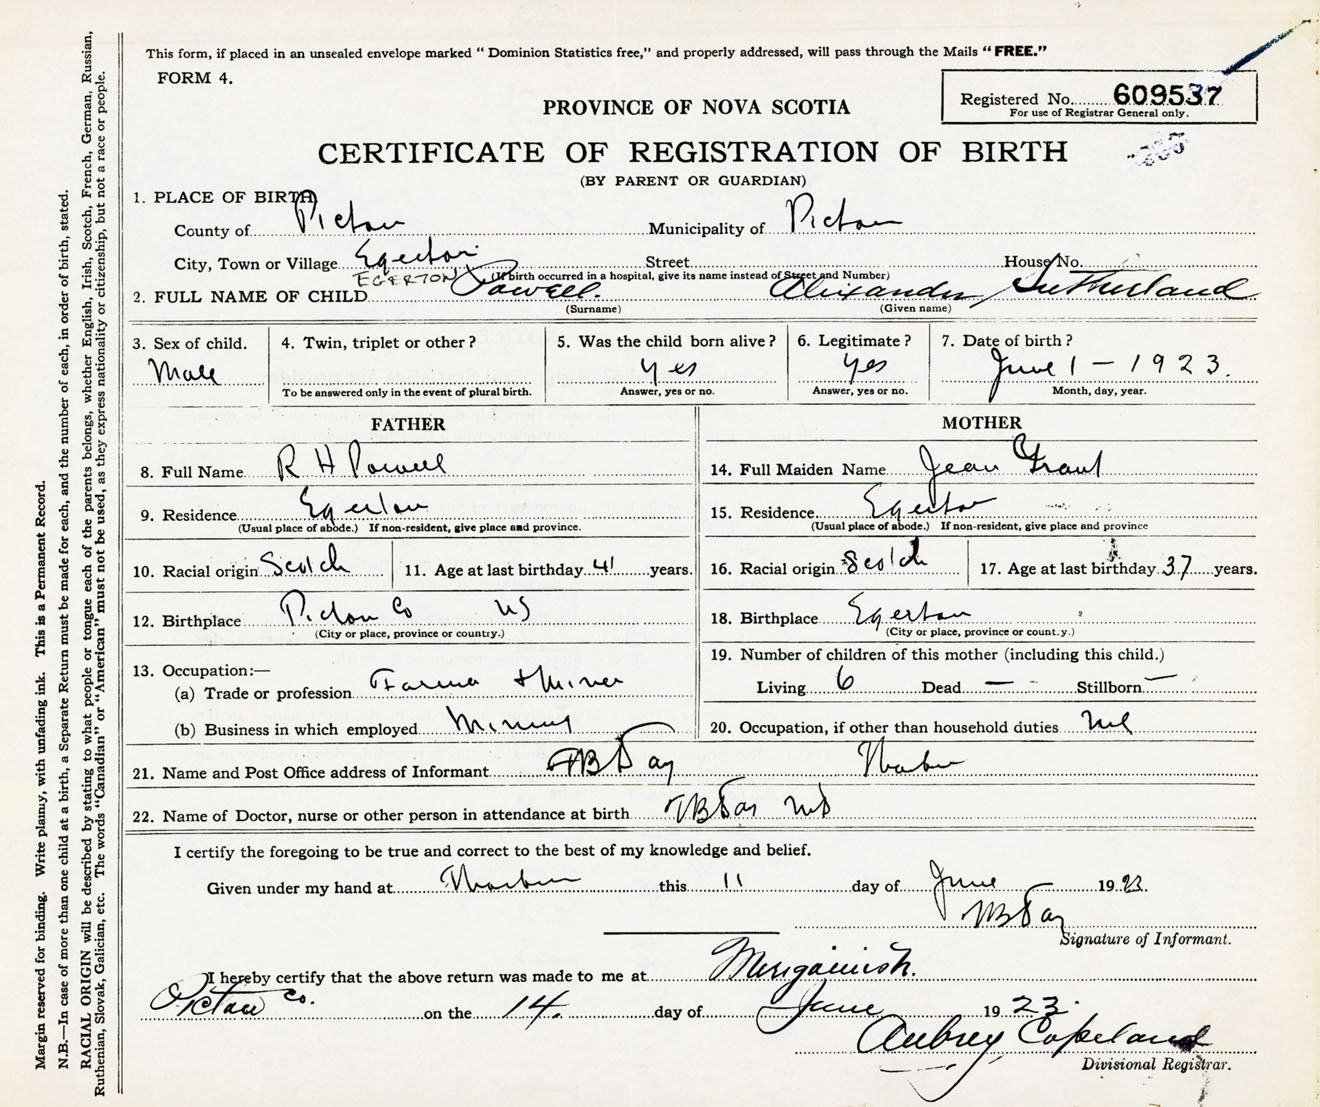 This form, if placed in an unsealed envelope marked “ Dominion Statistics free,” and properly addressed, will pass through the Mails “ FREE.”
FORM 4.
Registered No. 609537
For use of Registrar General only.
PROVINCE OF NOVA SCOTIA
CERTIFICATE OF REGISTRATION OF BIRTH
(BY PARENT OR GUARDIAN)
1. PLACE OF BIRTH
County of Pictou Municipality of Pictou
City, Town or Village Egerton Street House No.
EGERTON (If birth occurred in a hospital, give its name instead of Street and Number)
2. FULL NAME OF CHILD Powell. Alexander Sutherland
(Surname) (Given name)
3. Sex of child. 4. Twin, triplet or other ? 5. Was the child born alive ? 6. Legitimate ? 7. Date of birth ?
Male Yes Yes June 1 - 1923.
To be answered only in the event of plural birth. Answer, yes or no. Answer, yes or no. Month, day, year.
FATHER MOTHER
8. Full Name R H Powell 14. Full Maiden Name Jean Grant
9. Residence Egerton 15. Residence Egerton
(Usual place of abode.) If non-resident, give place and province. (Usual place of abode.) If non-resident, give place and province
10. Racial origin Scotch 11. Age at last birthday 41 years. 16. Racial origin Scotch 17. Age at last birthday 37 years.
12. Birthplace Pictou Co NS 18. Birthplace Egerton
(City or place, province or country.) (City or place, province or count.y.)
13. Occupation:— 19. Number of children of this mother (including this child.)
(a) Trade or profession Farmer & Miner Living 6 Dead — Stillborn —
(b) Business in which employed Mining 20. Occupation, if other than household duties nil
21. Name and Post Office address of Informant Day Thorburn
22. Name of Doctor, nurse or other person in attendance at birth Day MD
I certify the foregoing to be true and correct to the best of my knowledge and belief.
Given under my hand at Thorburn this 11 day of June 1923.
Day
Signature of Informant.
I hereby certify that the above return was made to me at Merigomish.
Pictou Co. on the 14. day of June 1923.
Aubrey Copeland
Divisional Registrar.
Margin reserved for binding. Write plainly, with unfading ink. This is a Permanent Record.
N.B.—In case of more than one child at a birth, a Separate Return must be made for each, and the number of each, in order of birth, stated.
RACIAL ORIGIN will be described by stating to what people or tongue each of the parents belongs, whether English, Irish, Scotch, French, German, Russian,
Ruthenian, Slovak, Galician, etc. The words “Canadian” or “American” must not be used, as they express nationality or citizenship, but not a race or people.